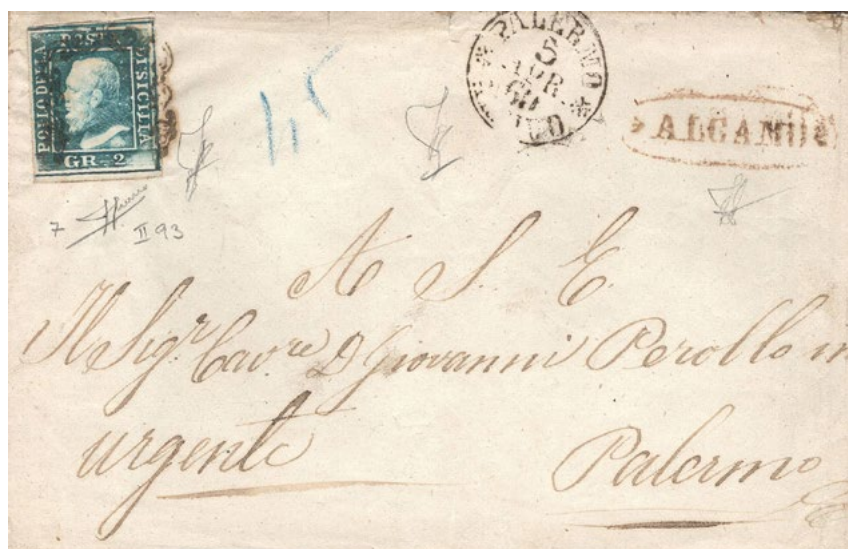 POSTA
POSTO DELLA
DI SICILIA
GR. 2
PALERMO
5
APR
60
ALCAMO
7
II 93
A S. E.
Il Sigr. Cavre D Giovanni Perollo in
urgente
Palermo